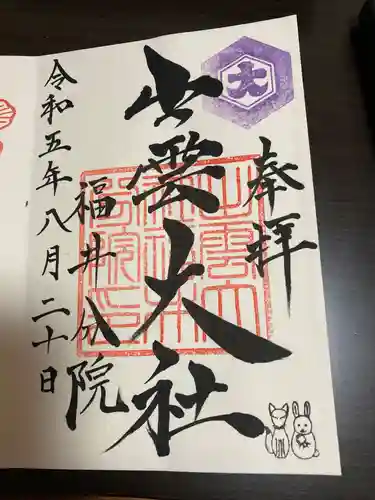 奉拝
大
出雲大社
福井分院
令和五年八月二十日